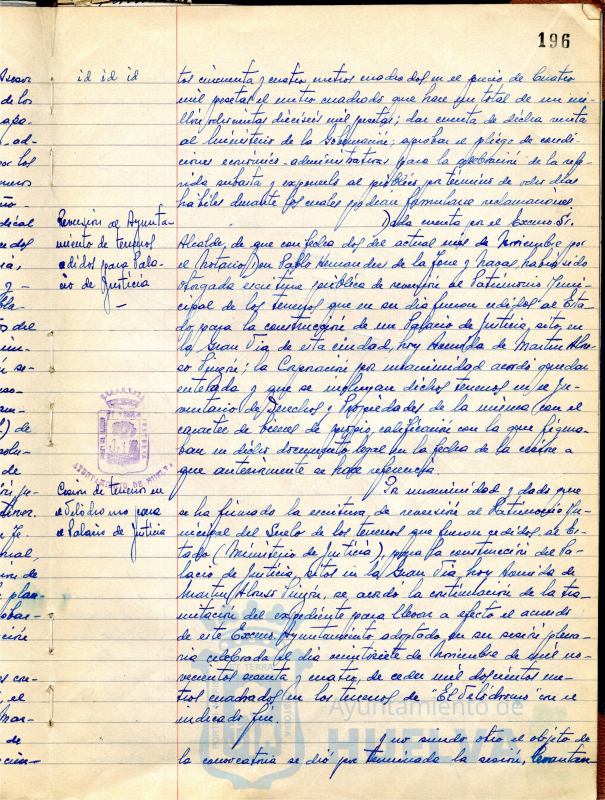 196
id id id
tos cincuenta y cuatro metros cuadrados en el precio de Cuatro
mil pesetas el metro cuadrado que hace un total de un mi-
llón ochocientas dieciseis mil pesetas; dar cuenta de dicha venta
al Ministerio de la Gobernación; aprobar el pliego de condi-
ciones económico-administrativas para la celebración de la refe-
rida subasta y exponerlo al público por término de ocho dias
hábiles durante los cuales podrán formularse reclamaciones.
Reversión al Ayunta-
miento de terrenos
cedidos para Pala-
cio de Justicia
Dada cuenta por el Excmo. Sr.
Alcalde, de que con fecha dos del actual mes de Noviembre por
el Notario Don Pablo Hernandez de la Torre y Navas, habia sido
otorgada escritura pública de reversión al Patrimonio Muni-
cipal de los terrenos que en su dia fueron cedidos al Esta-
do, para la construcción de un Palacio de Justicia, sito, en
la Gran Via de esta ciudad, hoy Avenida de Martin Alon-
so Pinzón; la Corporación por unanimidad acordó quedar
enterada y que se incluyan dichos terrenos en el In-
ventario de Derechos y Propiedades de la misma con el
caracter de bienes de propio, calificación con la que figura-
ban en dicho documento legal en la fecha de la cesión a
que anteriormente se hace referencia.
AYUNTAMIENTO DE HUELVA
Cesión de terrenos en
el Velódromo para
el Palacio de Justicia
Por unanimidad y dado que
se ha firmado la escritura, de reversión al Patrimonio Mu-
nicipal del Suelo de los terrenos que fueron cedidos al Es-
tado (Ministerio de Justicia) para la construcción del Pa-
lacio de Justicia, sitos en la Gran Via, hoy Avenida de
Martin Alonso Pinzón, se acordó la continuación de la tra-
mitación del expediente para llevar a efecto el acuerdo
de este Excmo. Ayuntamiento adoptado, en su sesión plena-
ria celebrada el dia veintisiete de noviembre de mil no-
vecientos sesenta y cuatro, de ceder mil doscientos me-
tros cuadrados en los terrenos de "El Velódromo" con el
indicado fin.
Ayuntamiento de
HUELVA
Y no siendo otro el objeto de
la convocatoria se dió por terminada la sesión, levantan